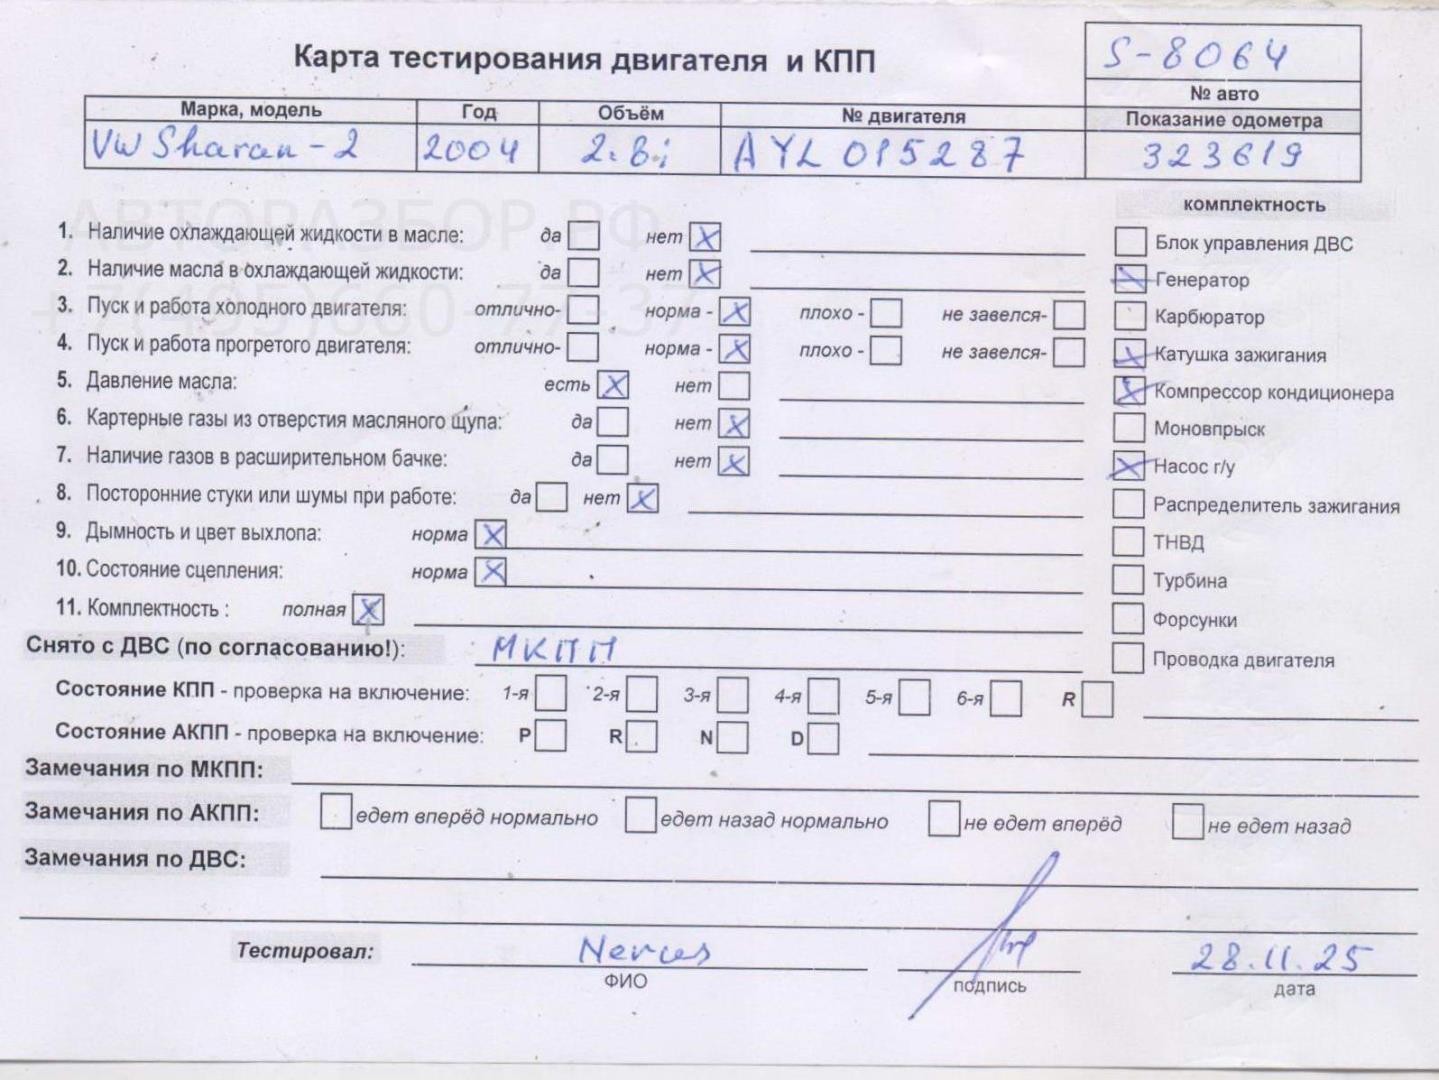 Карта тестирования двигателя и КПП
S-8064
№ авто
Марка, модель Год Объём № двигателя Показание одометра
VW Sharan-2 2004 2.8i AYL 015287 323619
АВТОРАЗБОР.РФ
+7(495)660-77-37
комплектность
1. Наличие охлаждающей жидкости в масле: да нет X
Блок управления ДВС
2. Наличие масла в охлаждающей жидкости: да нет X
X Генератор
3. Пуск и работа холодного двигателя: отлично- норма - X плохо - не завелся-
Карбюратор
4. Пуск и работа прогретого двигателя: отлично- норма - X плохо - не завелся-
X Катушка зажигания
5. Давление масла: есть X нет
X Компрессор кондиционера
6. Картерные газы из отверстия масляного щупа: да нет X
Моновпрыск
7. Наличие газов в расширительном бачке: да нет X
X Насос г/у
8. Посторонние стуки или шумы при работе: да нет X
Распределитель зажигания
9. Дымность и цвет выхлопа: норма X
ТНВД
10. Состояние сцепления: норма X
Турбина
11. Комплектность : полная X
Форсунки
Снято с ДВС (по согласованию!): МКПП
Проводка двигателя
Состояние КПП - проверка на включение: 1-я 2-я 3-я 4-я 5-я 6-я R
Состояние АКПП - проверка на включение: P R N D
Замечания по МКПП:
Замечания по АКПП: едет вперёд нормально едет назад нормально не едет вперёд не едет назад
Замечания по ДВС:
Тестировал: 28.11.25
ФИО подпись дата